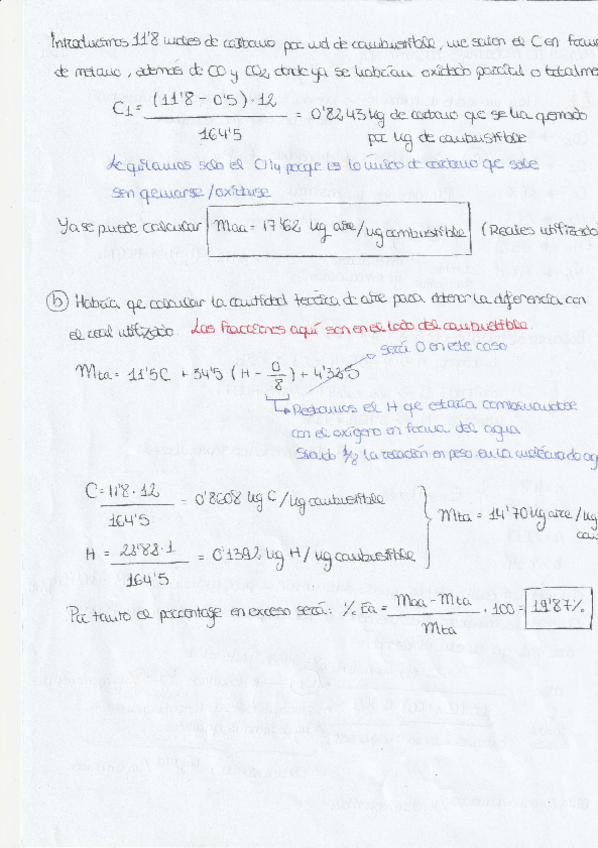 Introducimos 11'8 moles de carbono por mol de combustible, me salen el C en forma
de metano, además de CO y CO2, donde ya se habrían oxidado parcial o totalme
C1 = (11'8 - 0'5) · 12 / 164'5 = 0'8243 kg de carbono que se ha quemado
por kg de combustible
Le quitamos solo el CH4 porque es lo único de carbono que sale
sin quemarse/oxidarse
Ya se puede calcular maa = 17'62 kg aire/kg combustible (Reales utilizado)
b) Habría que calcular la cantidad teórica de aire para obtener la diferencia con
el real utilizado. Las fracciones aquí son en el lado del combustible.
será 0 en este caso
mta = 11'5C + 34'5 (H - O/8) + 4'32S
Restamos el H que estaría combinándose
con el oxígeno en forma del agua
Siendo 1/8 la relación en peso en la molécula de ag
C = 11'8 · 12 / 164'5 = 0'8608 kg C/kg combustible
mta = 14'70 kg aire/kg
H = 23'88 · 1 / 164'5 = 0'1392 kg H/kg combustible
Por tanto el porcentage en exceso será: % Ea = maa - mta / mta · 100 = 19'87%